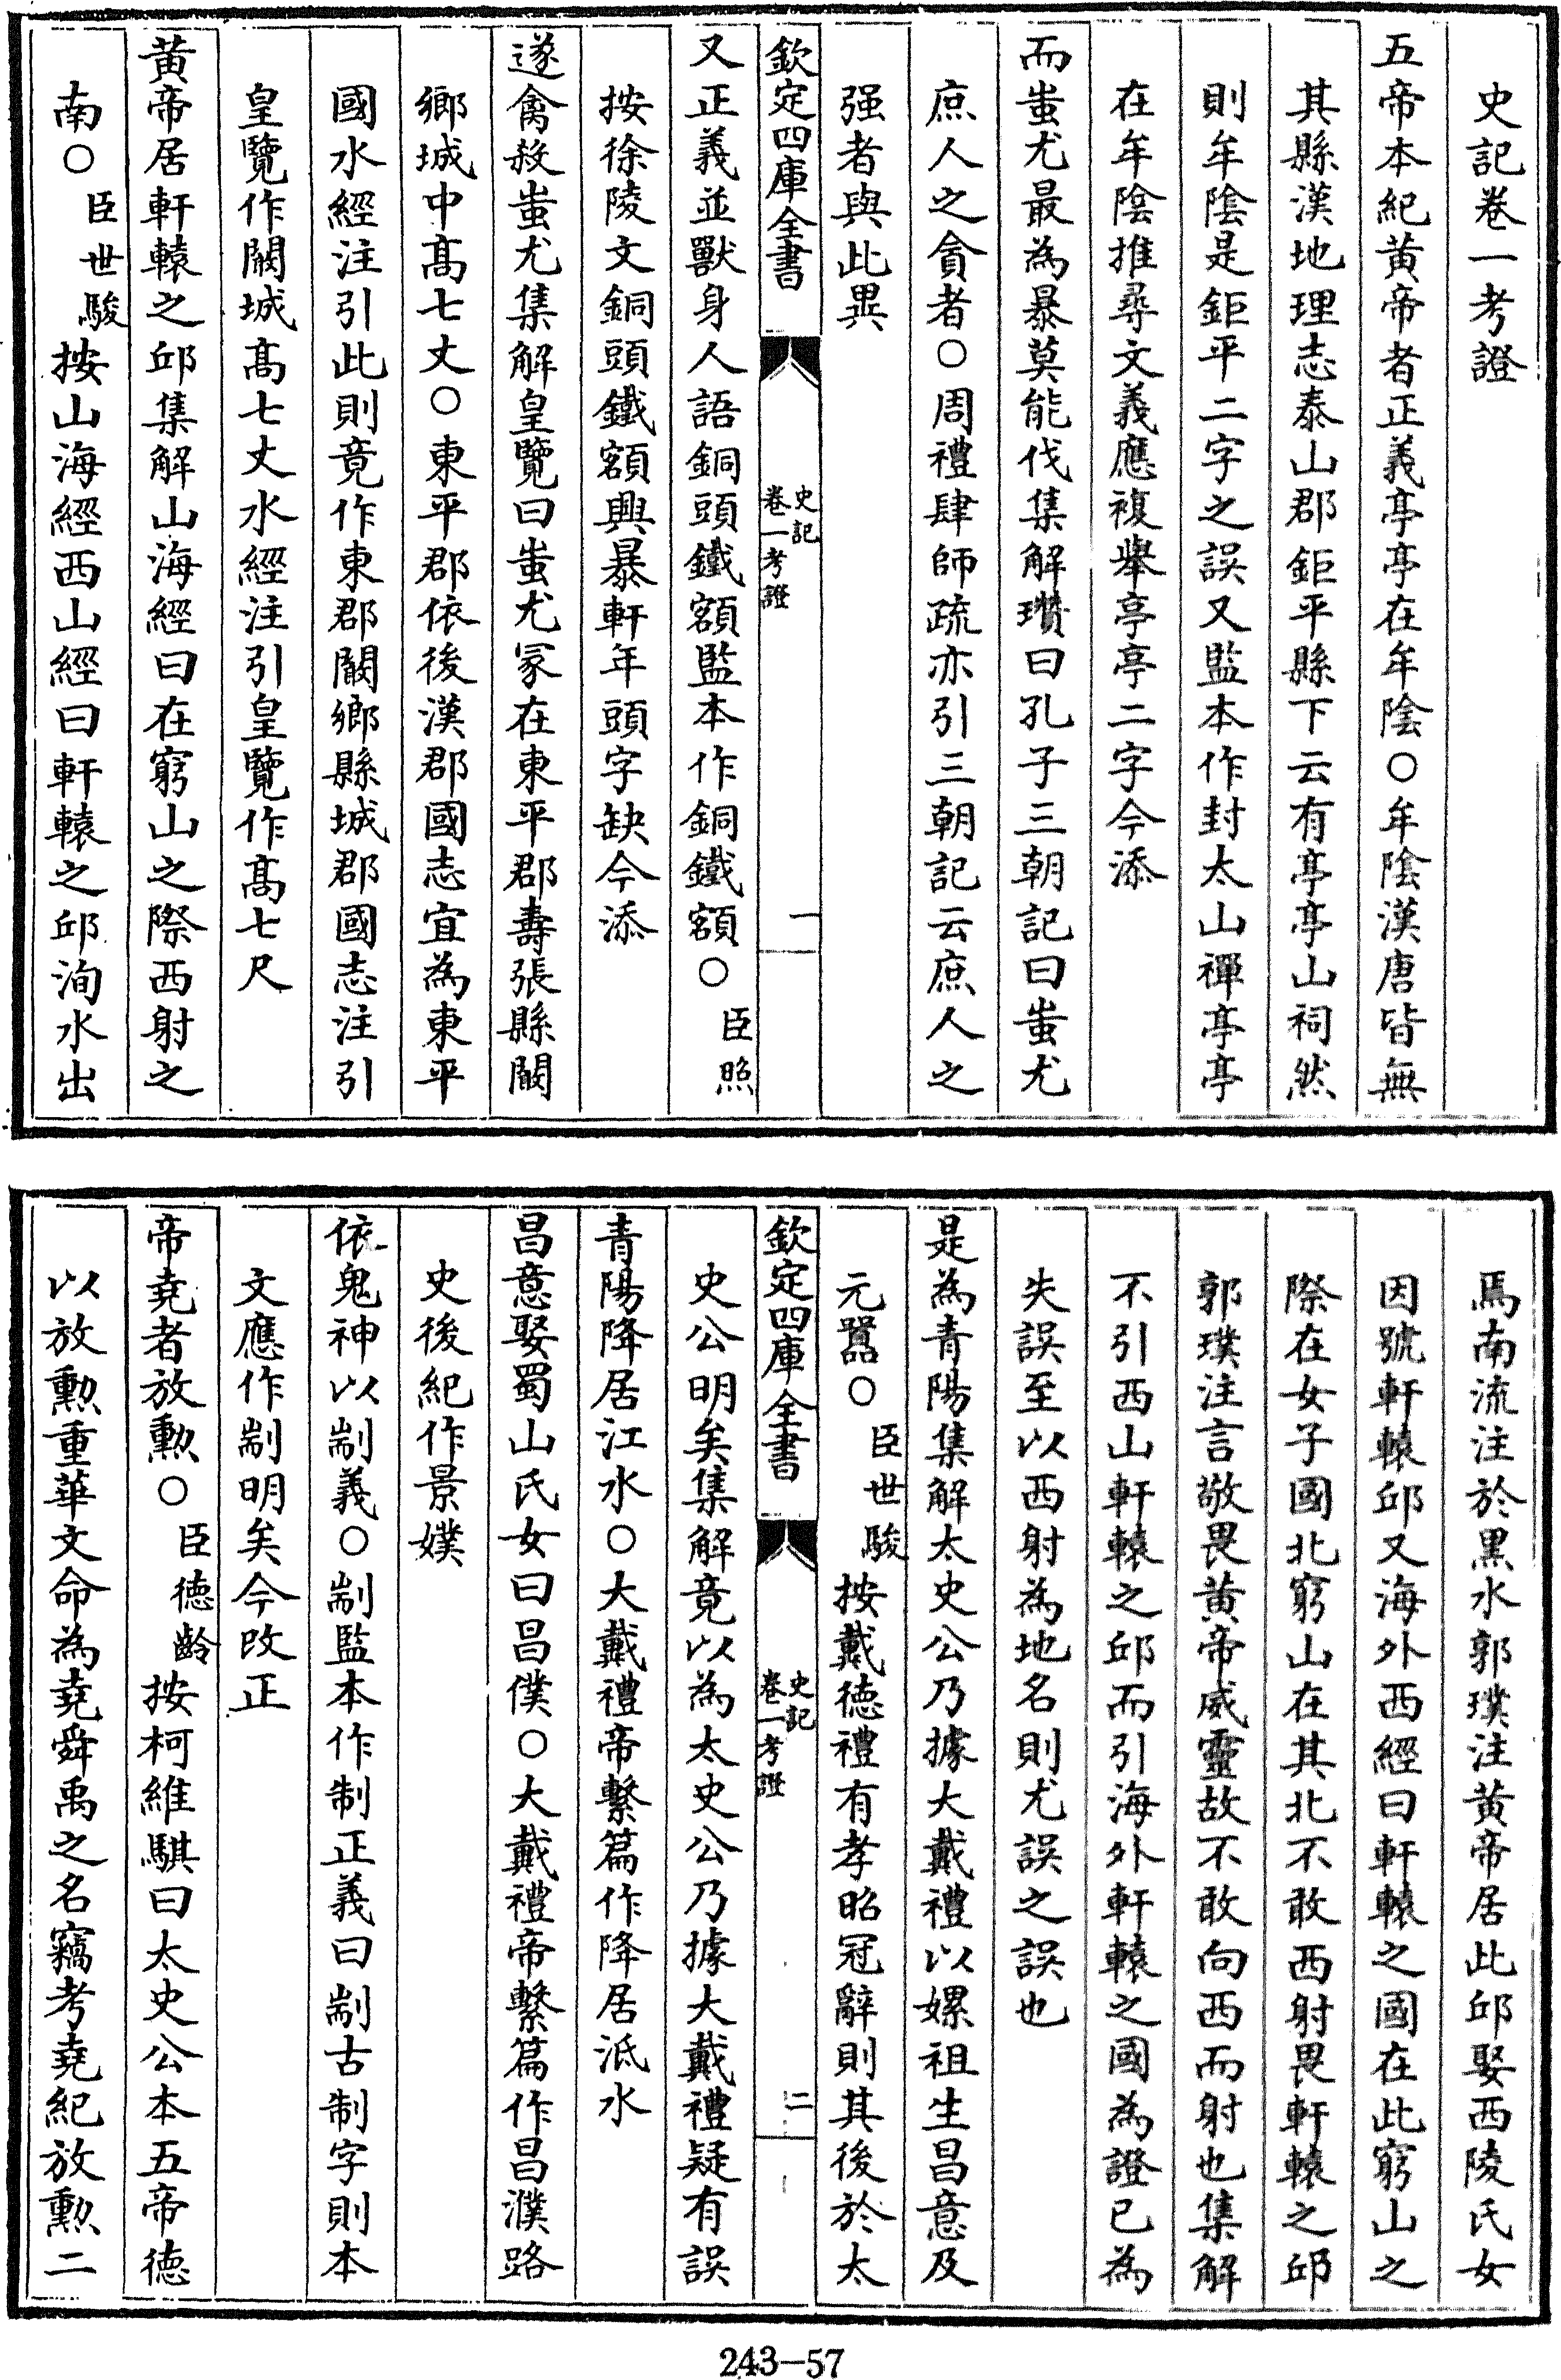 史記卷一考證
五帝本紀黄帝者正義亭亭在牟陰○牟陰漢唐皆無
其縣漢地理志泰山郡鉅平縣下云有亭亭山祠然
則牟陰是鉅平二字之誤又監本作封太山禪亭亭
在牟陰推尋文義應複舉亭亭二字今添
而蚩尤最為暴莫能伐集解瓚曰孔子三朝記曰蚩尤
庶人之貪者○周禮肆師疏亦引三朝記云庶人之
强者與此異
欽定四庫全書
史記
卷一考證
一
又正義並獸身人語銅頭鐵額監本作銅鐵額○臣照
按徐陵文銅頭鐵額興暴軒年頭字缺今添
遂禽殺蚩尤集解皇覽曰蚩尤冢在東平郡壽張縣闞
鄉城中髙七丈○東平郡依後漢郡國志宜為東平
國水經注引此則竟作東郡闞鄉縣城郡國志注引
皇覽作闞城髙七丈水經注引皇覽作髙七尺
黄帝居軒轅之邱集解山海經曰在窮山之際西射之
南○臣世駿按山海經西山經曰軒轅之邱洵水出
焉南流注於黒水郭璞注黄帝居此邱娶西陵氏女
因號軒轅邱又海外西經曰軒轅之國在此窮山之
際在女子國北窮山在其北不敢西射畏軒轅之邱
郭璞注言敬畏黄帝威靈故不敢向西而射也集解
不引西山軒轅之邱而引海外軒轅之國為證已為
失誤至以西射為地名則尤誤之誤也
是為青陽集解太史公乃據大戴禮以嫘祖生昌意及
元囂○臣世駿按戴徳禮有孝昭冠辭則其後於太
欽定四庫全書
史記
卷一考證
二
史公明矣集解竟以為太史公乃據大戴禮疑有誤
青陽降居江水○大戴禮帝繫篇作降居泜水
昌意娶蜀山氏女曰昌僕○大戴禮帝繫篇作昌濮路
史後紀作景㜑
依鬼神以剬義○剬監本作制正義曰剬古制字則本
文應作剬明矣今改正
帝堯者放勲○臣徳齡按柯維騏曰太史公本五帝徳
以放勲重華文命為堯舜禹之名竊考堯紀放勲二
243—57